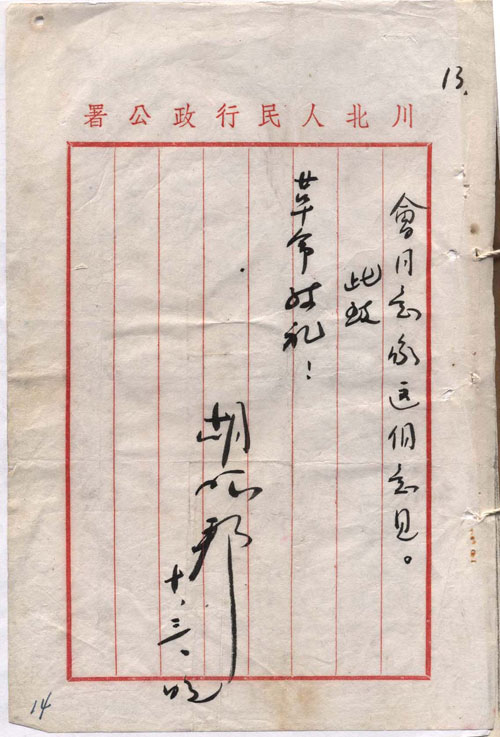 13.
川北人民行政公署
會同意我这個意見。
此致
革命敬礼！
胡耀邦
十.三.晚
14